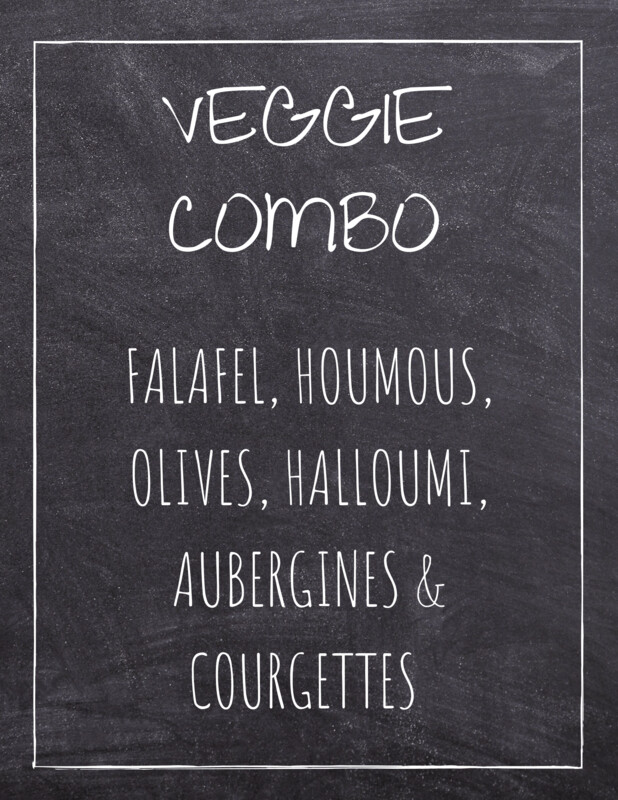 VEGGIE
COMBO
FALAFEL, HOUMOUS,
OLIVES, HALLOUMI,
AUBERGINES &
COURGETTES